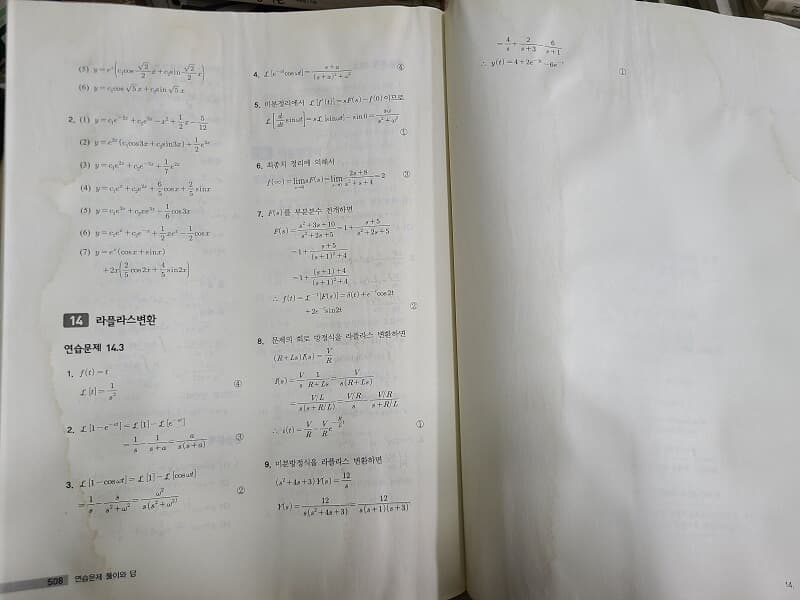 (5) y = eˣ(c₁cos √2/2 x + c₂sin √2/2 x)
(6) y = c₁cos √5 x + c₂sin √5 x
2. (1) y = c₁e⁻²ˣ + c₂e³ˣ − x² + 1/2 x − 5/12
(2) y = e²ˣ(c₁cos3x + c₂sin3x) + 1/2 e²ˣ
(3) y = c₁e²ˣ + c₂e⁻⁵ˣ + 1/7 e²ˣ
(4) y = c₁eˣ + c₂e²ˣ + 6/5 cosx + 2/5 sinx
(5) y = c₁e³ˣ + c₂xe³ˣ − 1/6 cos3x
(6) y = c₁eˣ + c₂e⁻ˣ + 1/2 xeˣ − 1/2 cosx
(7) y = eˣ(cosx + sinx)
+ 2x(2/5 cos2x + 4/5 sin2x)
14 라플라스변환
연습문제 14.3
1. f(t) = t
ℒ[t] = 1/s² ④
2. ℒ[1 − e⁻ᵃᵗ] = ℒ[1] − ℒ[e⁻ᵃᵗ]
= 1/s − 1/(s+a) = a/(s(s+a)) ③
3. ℒ[1 − cosωt] = ℒ[1] − ℒ[cosωt]
= 1/s − s/(s²+ω²) = ω²/(s(s²+ω²)) ②
508 연습문제 풀이와 답
4. ℒ[e⁻ᵃᵗcosωt] = (s+a)/((s+a)²+ω²) ④
5. 미분정리에서 ℒ[f′(t)] = sF(s) − f(0)이므로
ℒ[d/dt sinωt] = sℒ[sinωt] − sin0 = sω/(s²+ω²)
①
6. 최종치 정리에 의해서
f(∞) = lim s→0 sF(s) = lim s→0 (2s+8)/(s²+s+4) = 2 ③
7. F(s)를 부분분수 전개하면
F(s) = (s²+3s+10)/(s²+2s+5) = 1 + (s+5)/(s²+2s+5)
= 1 + (s+5)/((s+1)²+4)
= 1 + ((s+1)+4)/((s+1)²+4)
∴ f(t) = ℒ⁻¹[F(s)] = δ(t) + e⁻ᵗcos2t
+ 2e⁻ᵗsin2t ②
8. 문제의 회로 방정식을 라플라스 변환하면
(R+Ls)I(s) = V/R
I(s) = V/s 1/(R+Ls) = V/(s(R+Ls))
= (V/L)/(s(s+R/L)) = (V/R)/s − (V/R)/(s+R/L)
∴ i(t) = V/R − V/R e^(−R/L t) ①
9. 미분방정식을 라플라스 변환하면
(s²+4s+3)Y(s) = 12/s
Y(s) = 12/(s(s²+4s+3)) = 12/(s(s+1)(s+3))
= 4/s + 2/(s+3) − 6/(s+1)
∴ y(t) = 4 + 2e⁻³ᵗ − 6e⁻ᵗ
①
14.